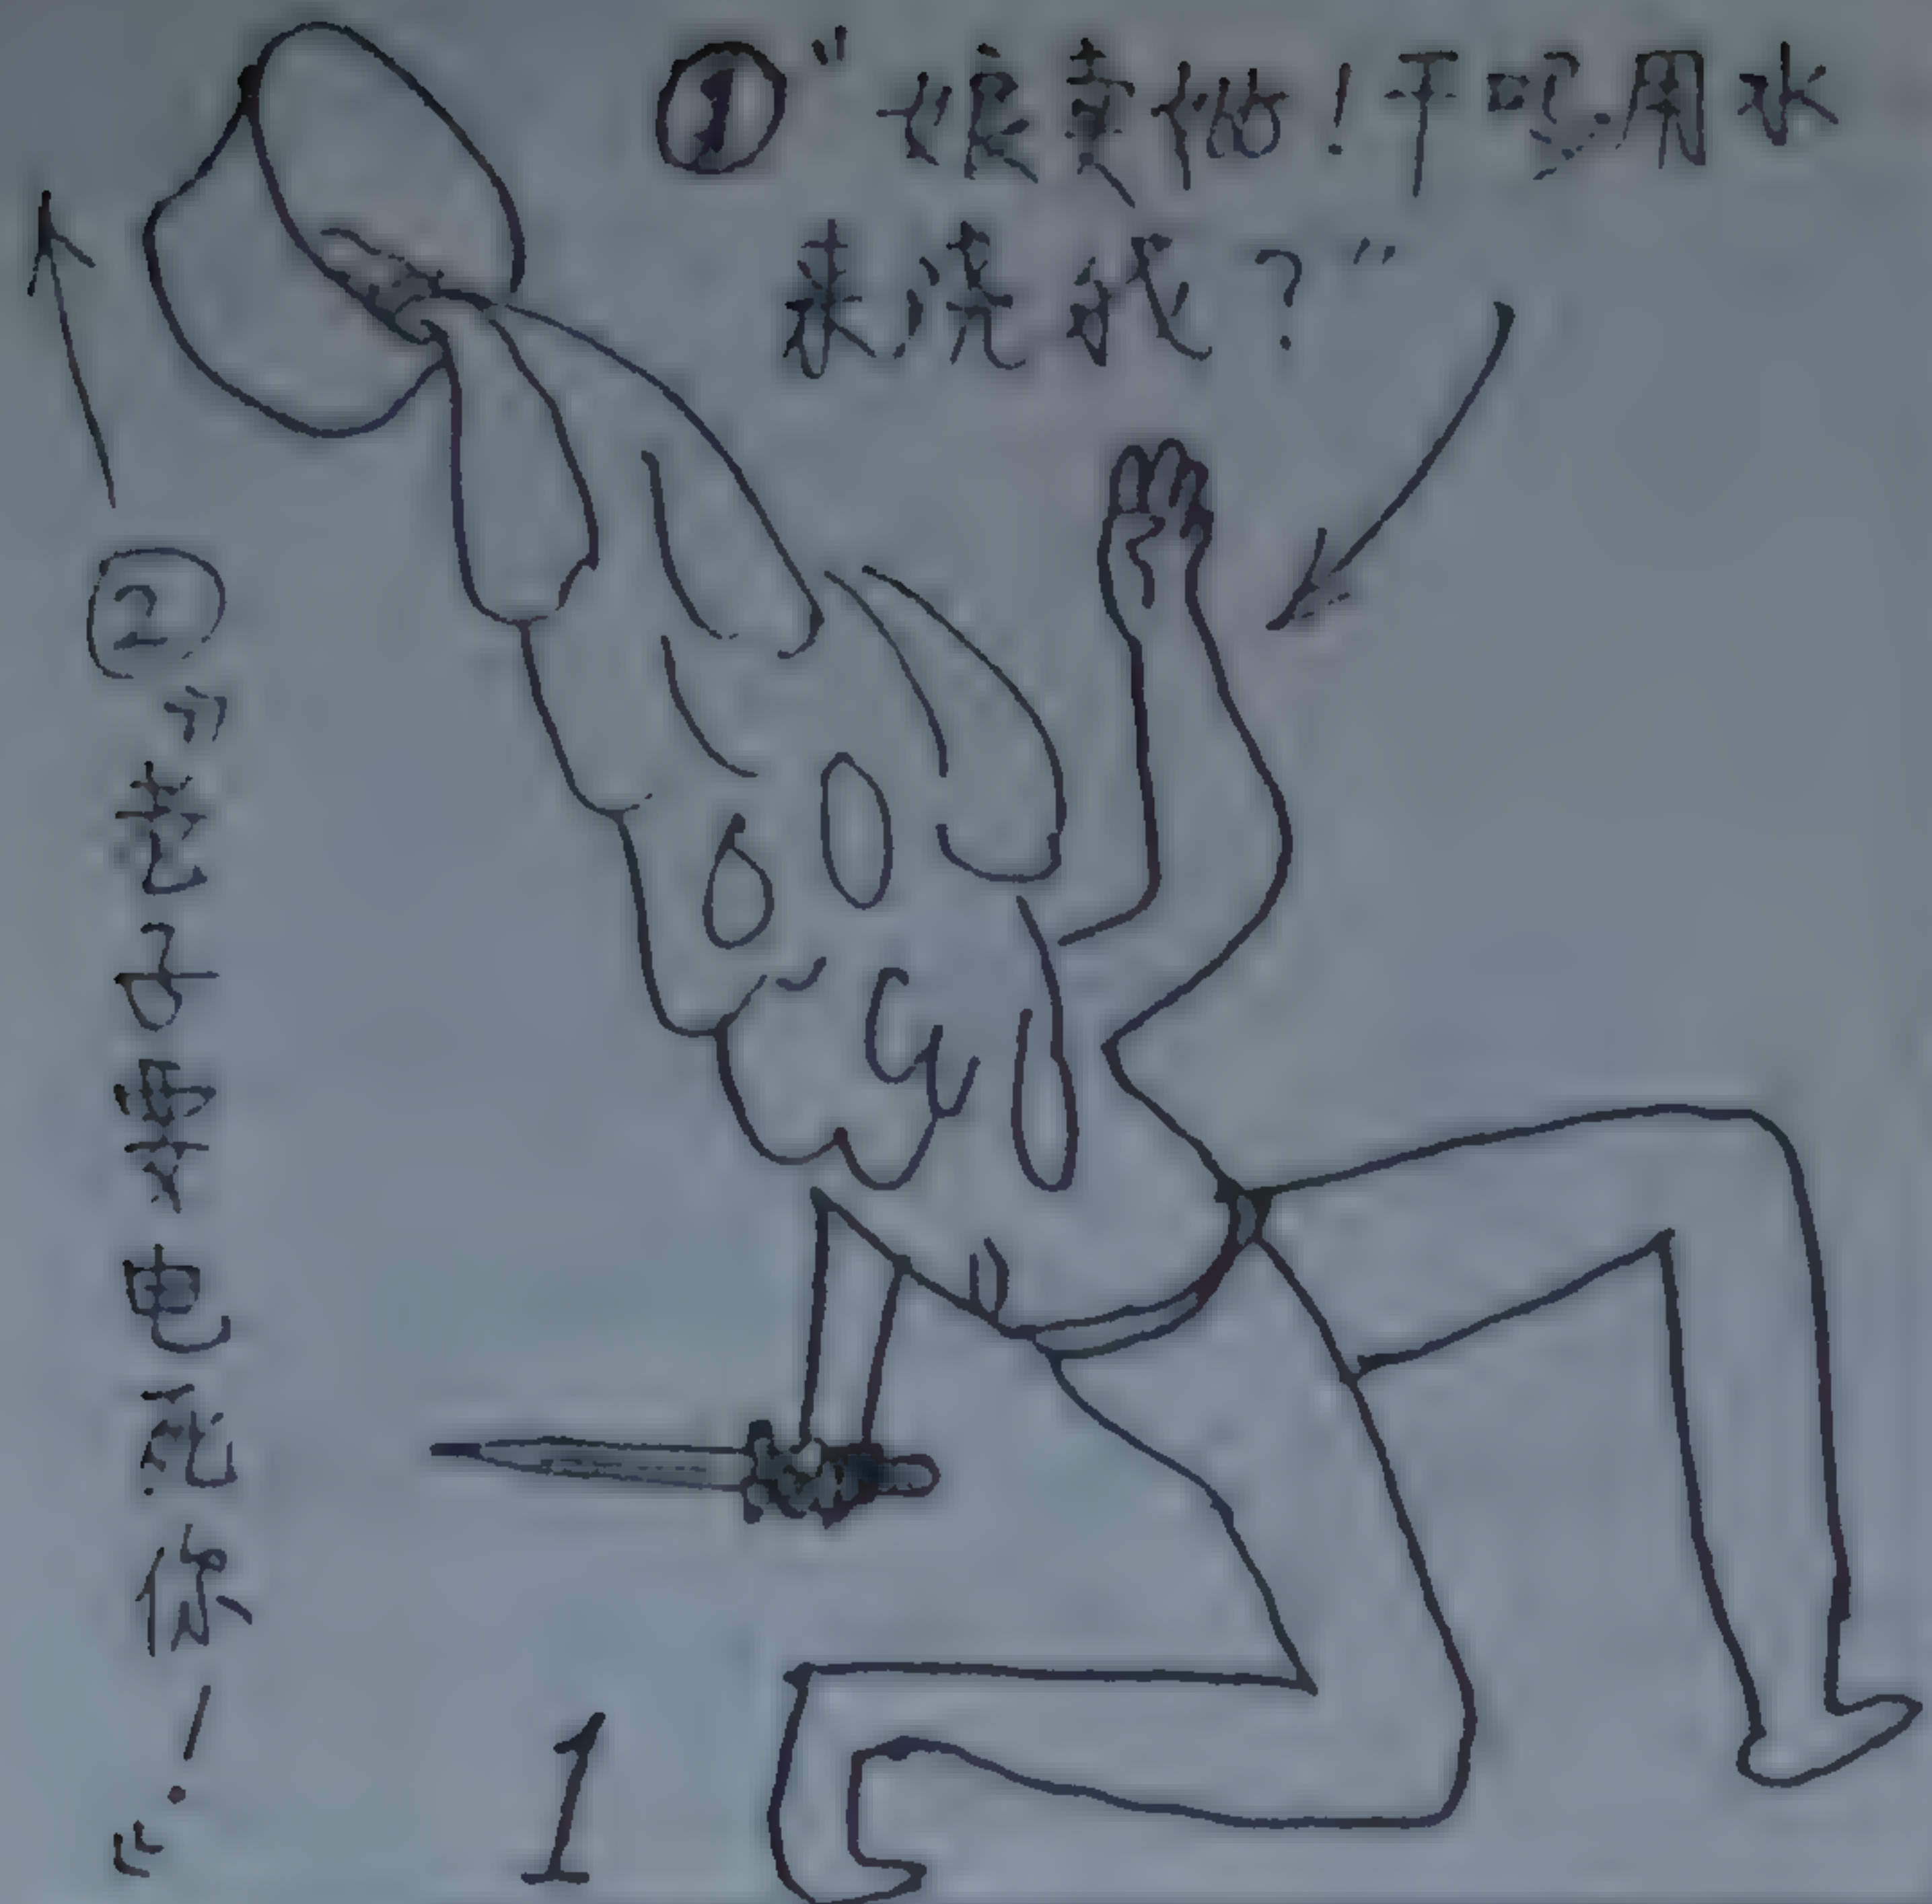 ①"娘卖！干吗用水
来浇我？"
②"老子要电死你！"
1